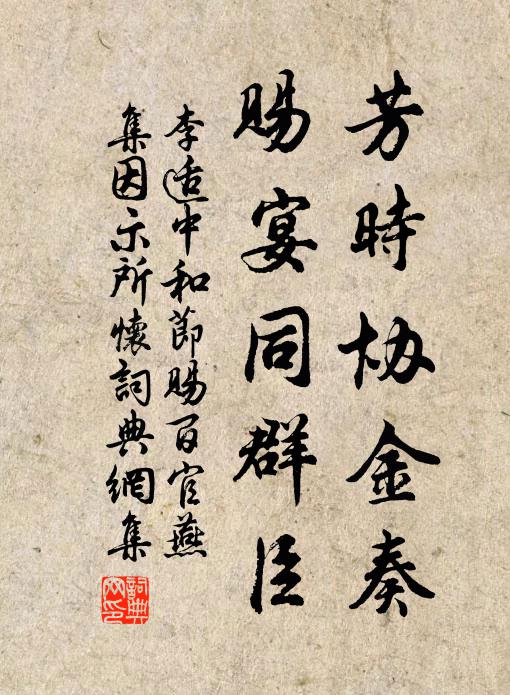 芳時協金奏
賜宴同群臣
李适中和節賜百官燕
集因示所懷詞典網集
詞典網印